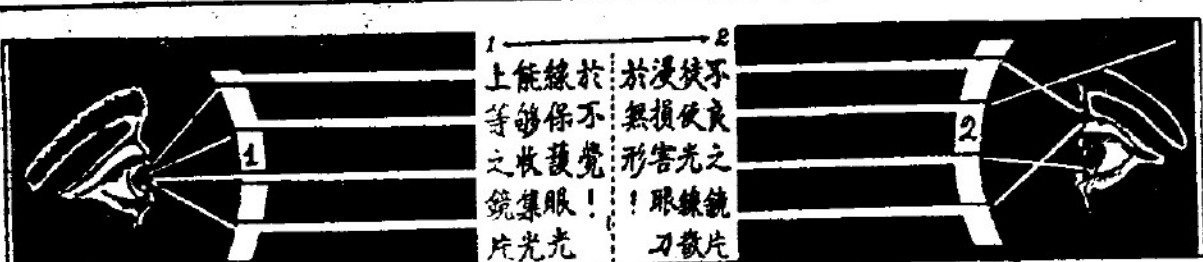 1
2
上等之鏡片
能够收集光
線保護眼光
於不覺!
不良之鏡片
使光線散
漫損害眼力
於無形!
1
2